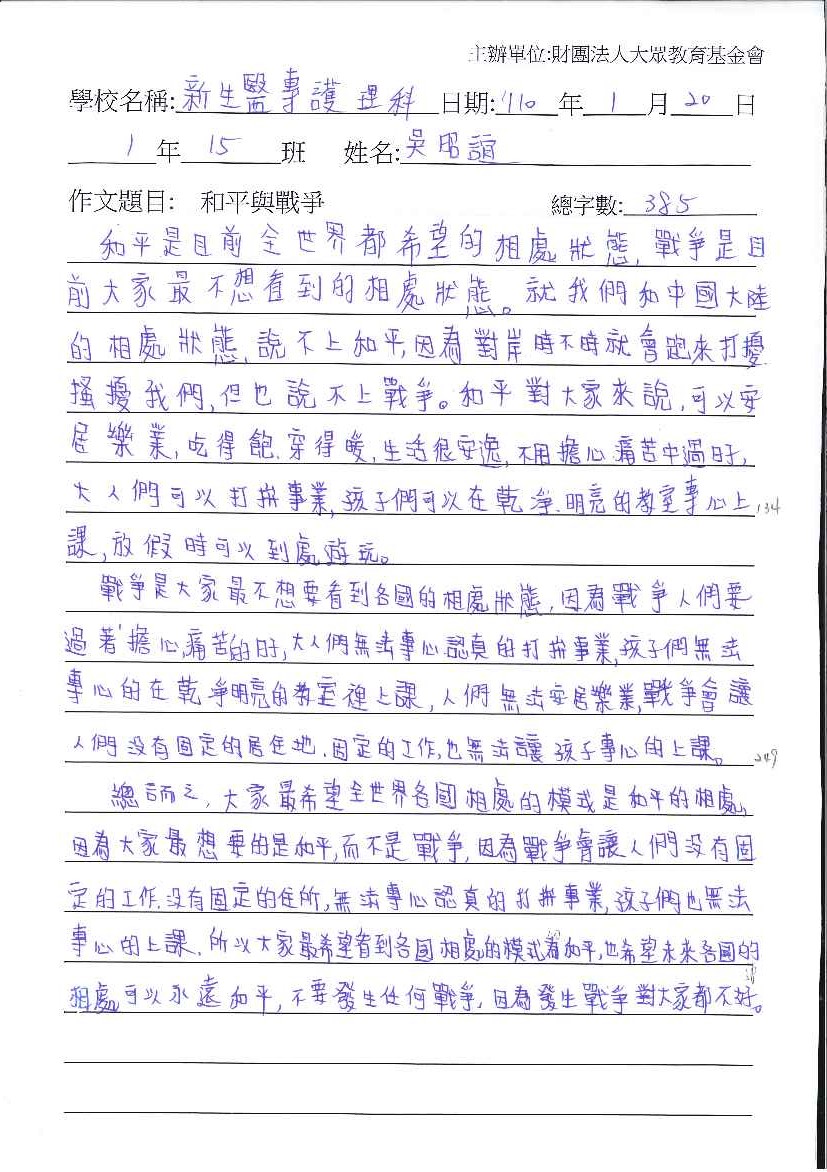 主辦單位:財團法人大眾教育基金會
學校名稱:新生醫專護理科 日期:110年1月20日
1年15班 姓名:吳昭誼
作文題目: 和平與戰爭 總字數:385
和平是目前全世界都希望的相處狀態,戰爭是目
前大家最不想看到的相處狀態。就我們和中國大陸
的相處狀態,說不上和平,因為對岸時不時就會跑來打擾
搔擾我們,但也說不上戰爭。和平對大家來說,可以安
居樂業,吃得飽.穿得暖,生活很安逸,不用擔心.痛苦中過日子,
大人們可以打拼事業,孩子們可以在乾淨.明亮的教室專心上 134
課,放假時可以到處遊玩。
戰爭是大家最不想要看到各國的相處狀態,因為戰爭人們要
過著擔心,痛苦的日子,大人們無法專心認真的打拼事業,孩子們無法
專心的在乾淨明亮的教室裡上課,人們無法安居樂業,戰爭會讓
人們沒有固定的居住地.固定的工作,也無法讓孩子專心的上課。 249
總而之,大家最希望全世界各國相處的模式是和平的相處,
因為大家最想要的是和平,而不是戰爭,因為戰爭會讓人們沒有固
定的工作.沒有固定的住所,無法專心認真的打拼事業,孩子們也無法
專心的上課.所以大家最希望看到各國相處的模式為和平,也希望未來各國的
相處可以永遠和平,不要發生任何戰爭,因為發生戰爭對大家都不好。